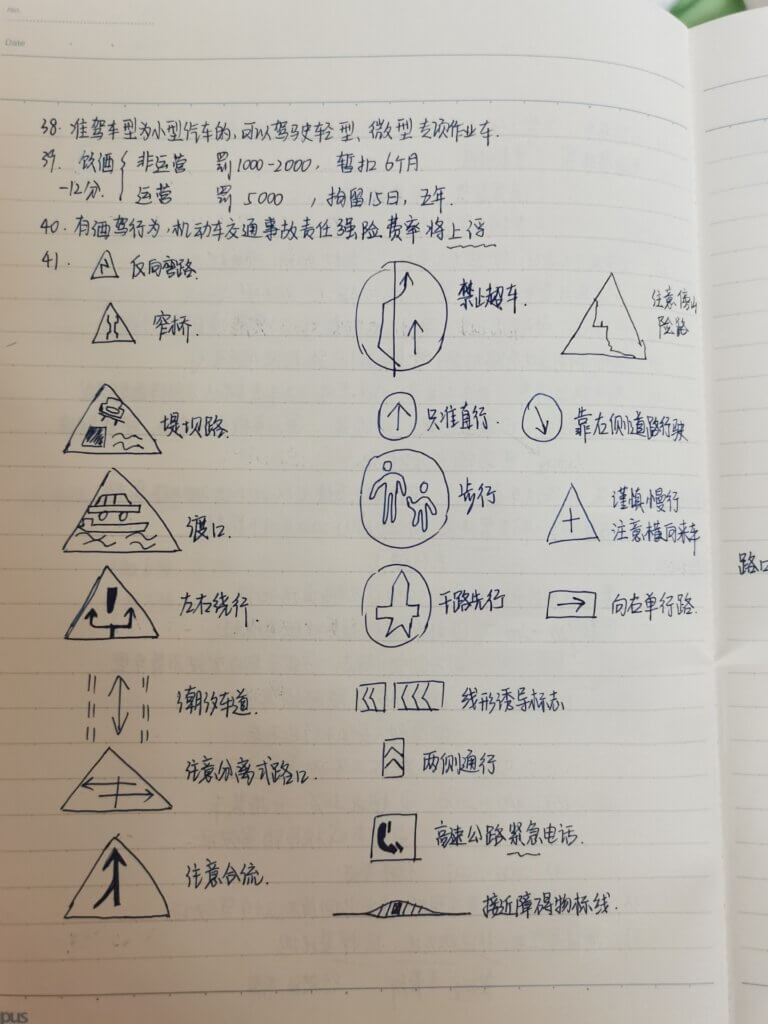 No.
Date
38. 准驾车型为小型汽车的,可以驾驶轻型、微型专项作业车.
39. 饮酒 { 非运营 罚1000-2000, 暂扣6个月
-12分. 运营 罚5000 ,拘留15日,五年.
40. 有酒驾行为,机动车交通事故责任强险费率将上浮
41. 反向弯路.
禁止超车.
注意傍山
险路
窄桥.
堤坝路.
只准直行.
靠右侧道路行驶
渡口.
步行
谨慎慢行
注意横向来车
左右绕行.
干路先行
向右单行路.
路口
潮汐车道.
线形诱导标志
注意分离式路口.
两侧通行
高速公路紧急电话.
注意合流.
接近障碍物标线.
pus